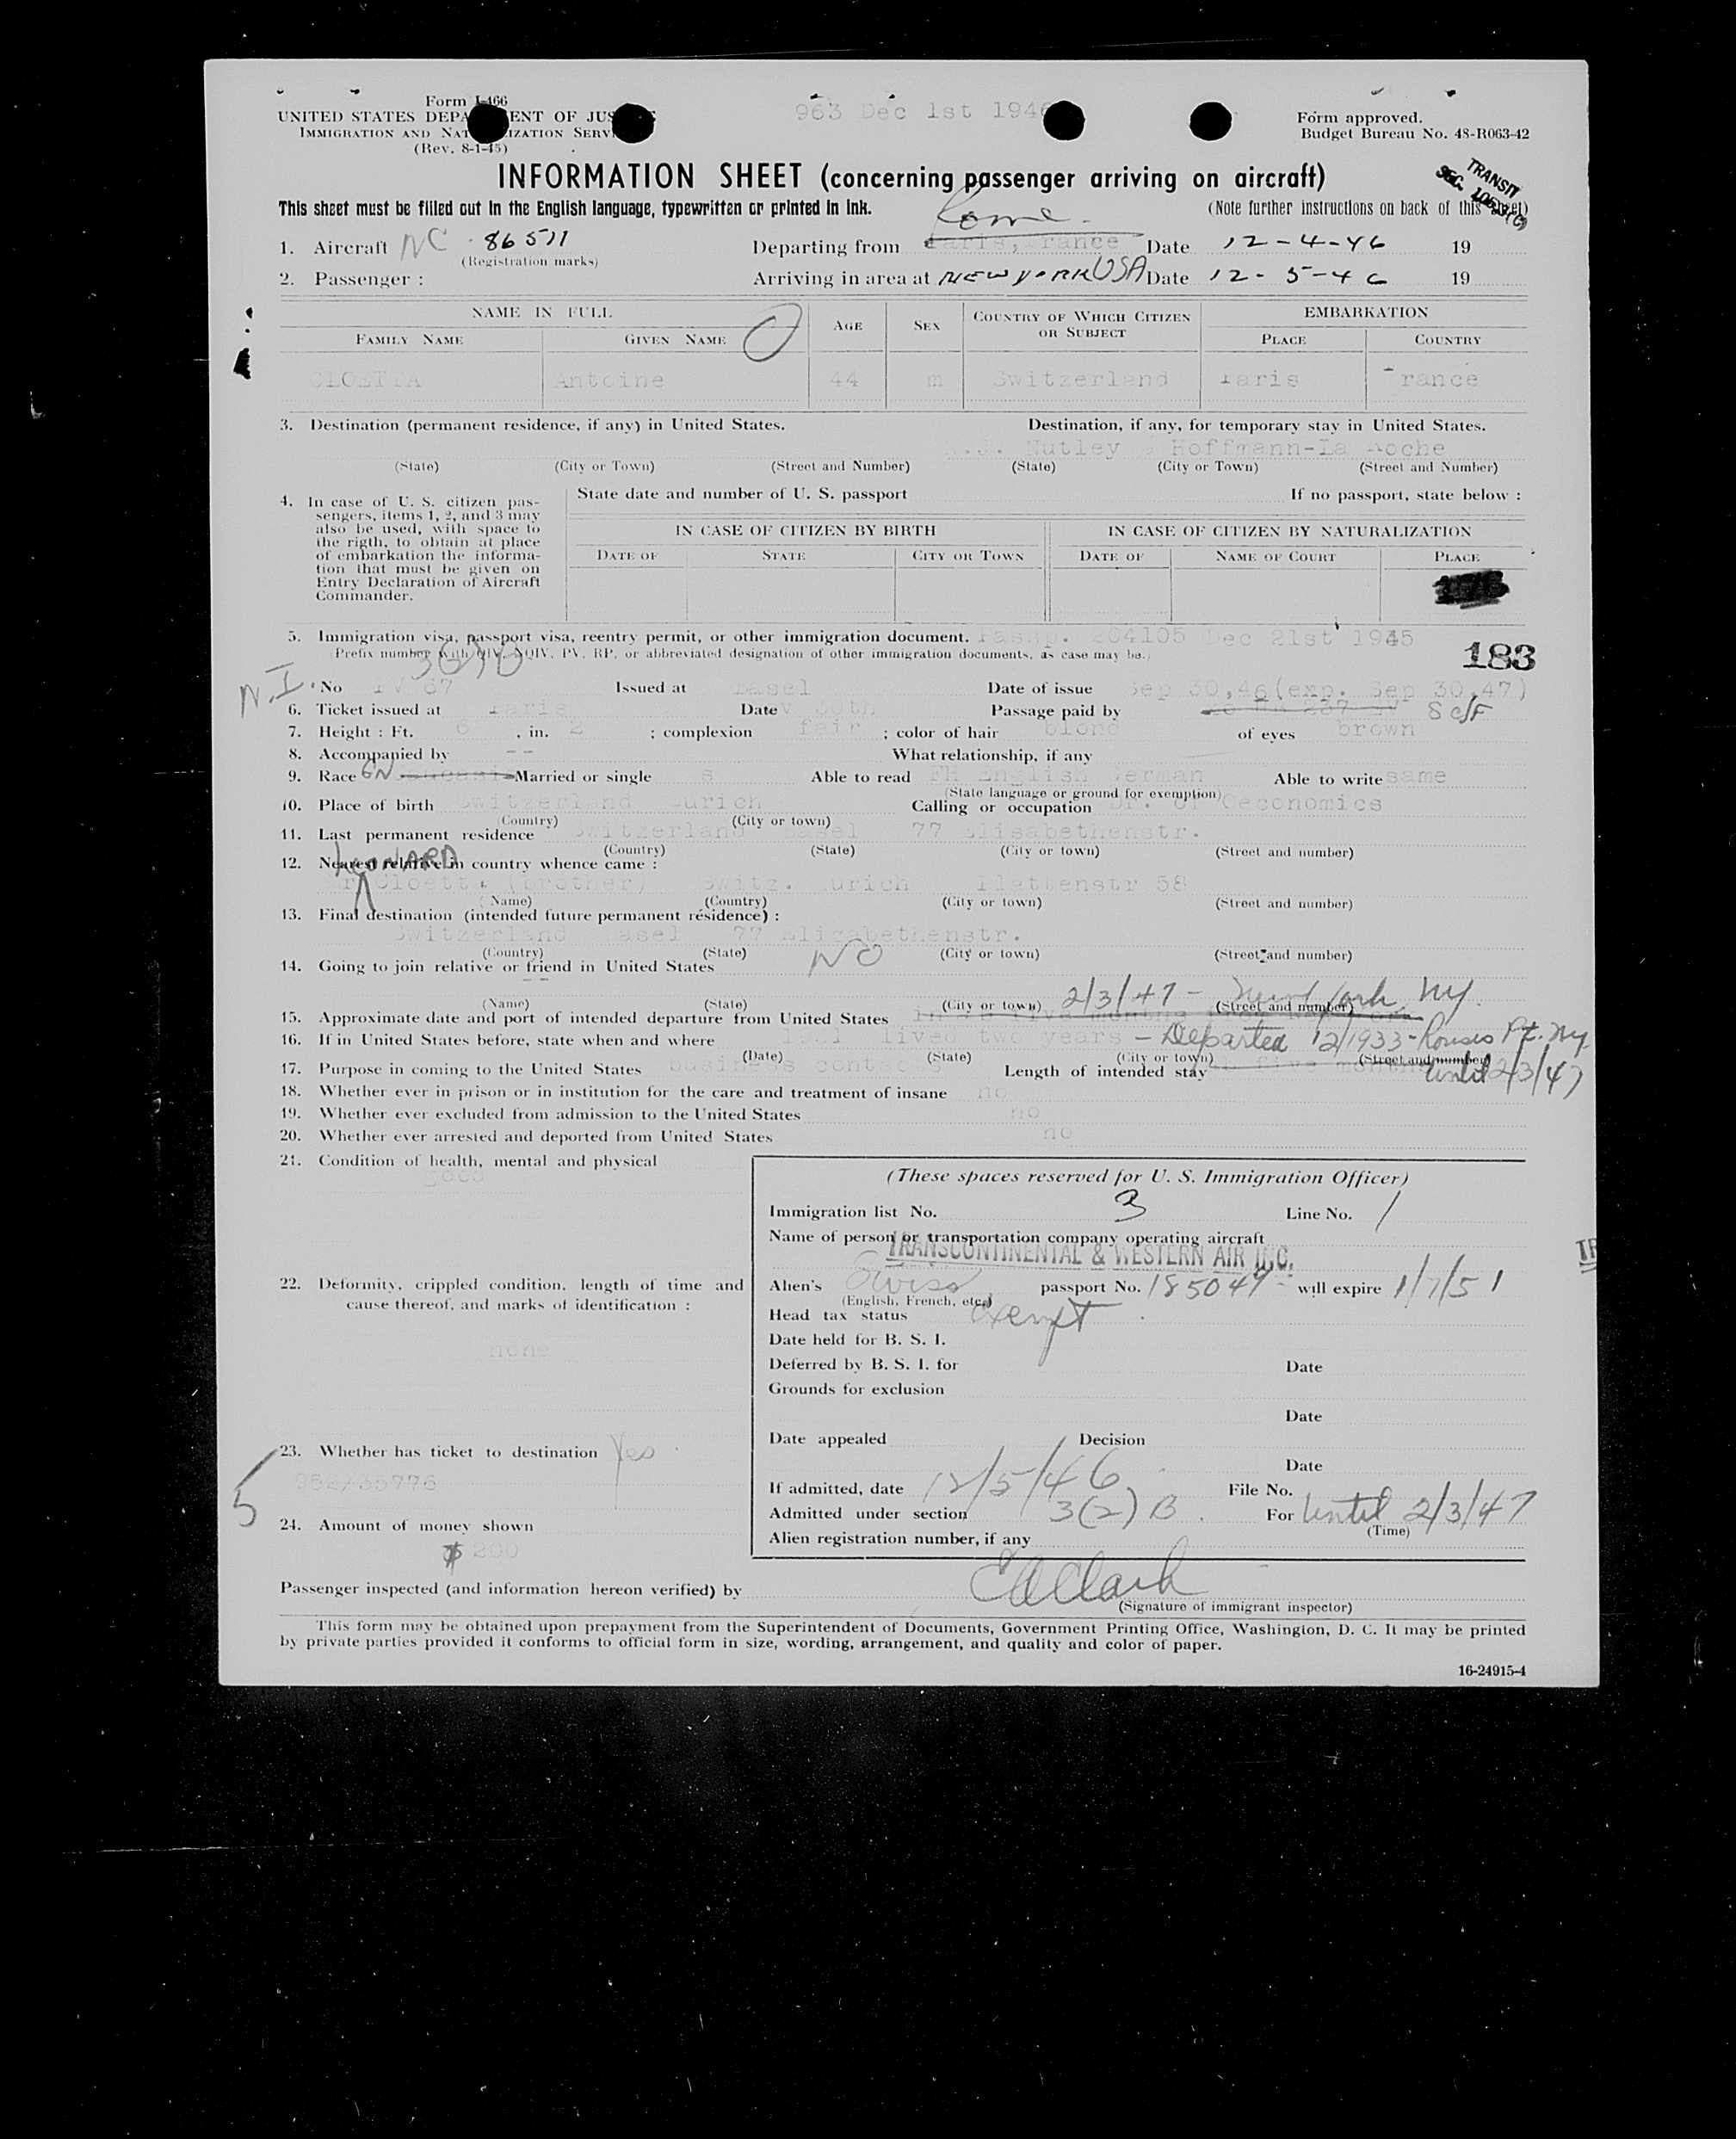 Form I-466
963 Dec 1st 1946
UNITED STATES DEPA ENT OF JUS
Form approved.
IMMIGRATION AND NAT IZATION SERV
Budget Bureau No. 48-R063-42
(Rev. 8-1-45)
INFORMATION SHEET (concerning passenger arriving on aircraft)
TRANSIT
SEC.
This sheet must be filled out in the English language, typewritten or printed in ink.
(Note further instructions on back of this sheet)
Rome
1. Aircraft NC 86511 Departing from Paris, France Date 12-4-46 19
(Registration marks)
2. Passenger : Arriving in area at NEW YORK USA Date 12-5-46 19
NAME IN FULL AGE SEX COUNTRY OF WHICH CITIZEN OR SUBJECT EMBARKATION
FAMILY NAME GIVEN NAME PLACE COUNTRY
CLOETTA Antoine 44 m Switzerland Paris France
3. Destination (permanent residence, if any) in United States. Destination, if any, for temporary stay in United States.
N.J. Nutley Hoffmann-La Roche
(State) (City or Town) (Street and Number) (State) (City or Town) (Street and Number)
4. In case of U. S. citizen pas-
sengers, items 1, 2, and 3 may
also be used, with space to
the rigth, to obtain at place
of embarkation the informa-
tion that must be given on
Entry Declaration of Aircraft
Commander.
State date and number of U. S. passport If no passport, state below :
IN CASE OF CITIZEN BY BIRTH IN CASE OF CITIZEN BY NATURALIZATION
DATE OF STATE CITY OR TOWN DATE OF NAME OF COURT PLACE
5. Immigration visa, passport visa, reentry permit, or other immigration document. Passp. 204105 Dec 21st 1945
(Prefix number with QIV, NQIV, PV, RP, or abbreviated designation of other immigration documents, as case may be.)
183
3(2)B
N.I. No PV 67 Issued at Basel Date of issue Sep 30,46(exp. Sep 30,47)
6. Ticket issued at Paris Date Nov 30th Passage paid by Self
7. Height : Ft. 6 , in. 2 ; complexion fair ; color of hair blond of eyes brown
8. Accompanied by -- What relationship, if any
9. Race GN Married or single s Able to read English German Able to write same
(State language or ground for exemption)
10. Place of birth Switzerland Zurich Calling or occupation Dr. of Oeconomics
(Country) (City or town)
11. Last permanent residence Switzerland Basel 77 Elisabethenstr.
(Country) (State) (City or town) (Street and number)
LEONARD
12. Nearest relative in country whence came :
Mr Cloetta (brother) Switz. Zurich Plattenstr 58
(Name) (Country) (City or town) (Street and number)
13. Final destination (intended future permanent résidence) :
Switzerland Basel 77 Elisabethenstr.
(Country) (State) (City or town) (Street and number)
14. Going to join relative or friend in United States NO
--
(Name) (State) (City or town) (Street and number)
15. Approximate date and port of intended departure from United States 2/3/47 - New York, NY.
16. If in United States before, state when and where lived two years - Departed 12/1933 - Rouses Pt. NY
(Date) (State) (City or town) (Street and number)
17. Purpose in coming to the United States business contacts Length of intended stay five months until 2/3/47
18. Whether ever in prison or in institution for the care and treatment of insane no
19. Whether ever excluded from admission to the United States no
20. Whether ever arrested and deported from United States no
21. Condition of health, mental and physical
good
22. Deformity, crippled condition, length of time and
cause thereof, and marks of identification :
none
23. Whether has ticket to destination Yes
5
24. Amount of money shown
$ 200
(These spaces reserved for U. S. Immigration Officer)
Immigration list No. 3 Line No. 1
Name of person or transportation company operating aircraft
TRANSCONTINENTAL & WESTERN AIR INC.
Alien's Swiss passport No. 185049 will expire 1/7/51
(English, French, etc.)
Head tax status exempt
Date held for B. S. I.
Deferred by B. S. I. for Date
Grounds for exclusion
Date
Date appealed Decision
Date
If admitted, date 12/5/46 File No.
Admitted under section 3(2)B For Until 2/3/47
(Time)
Alien registration number, if any
Passenger inspected (and information hereon verified) by EA Clark
(Signature of immigrant inspector)
This form may be obtained upon prepayment from the Superintendent of Documents, Government Printing Office, Washington, D. C. It may be printed
by private parties provided it conforms to official form in size, wording, arrangement, and quality and color of paper.
16-24915-4